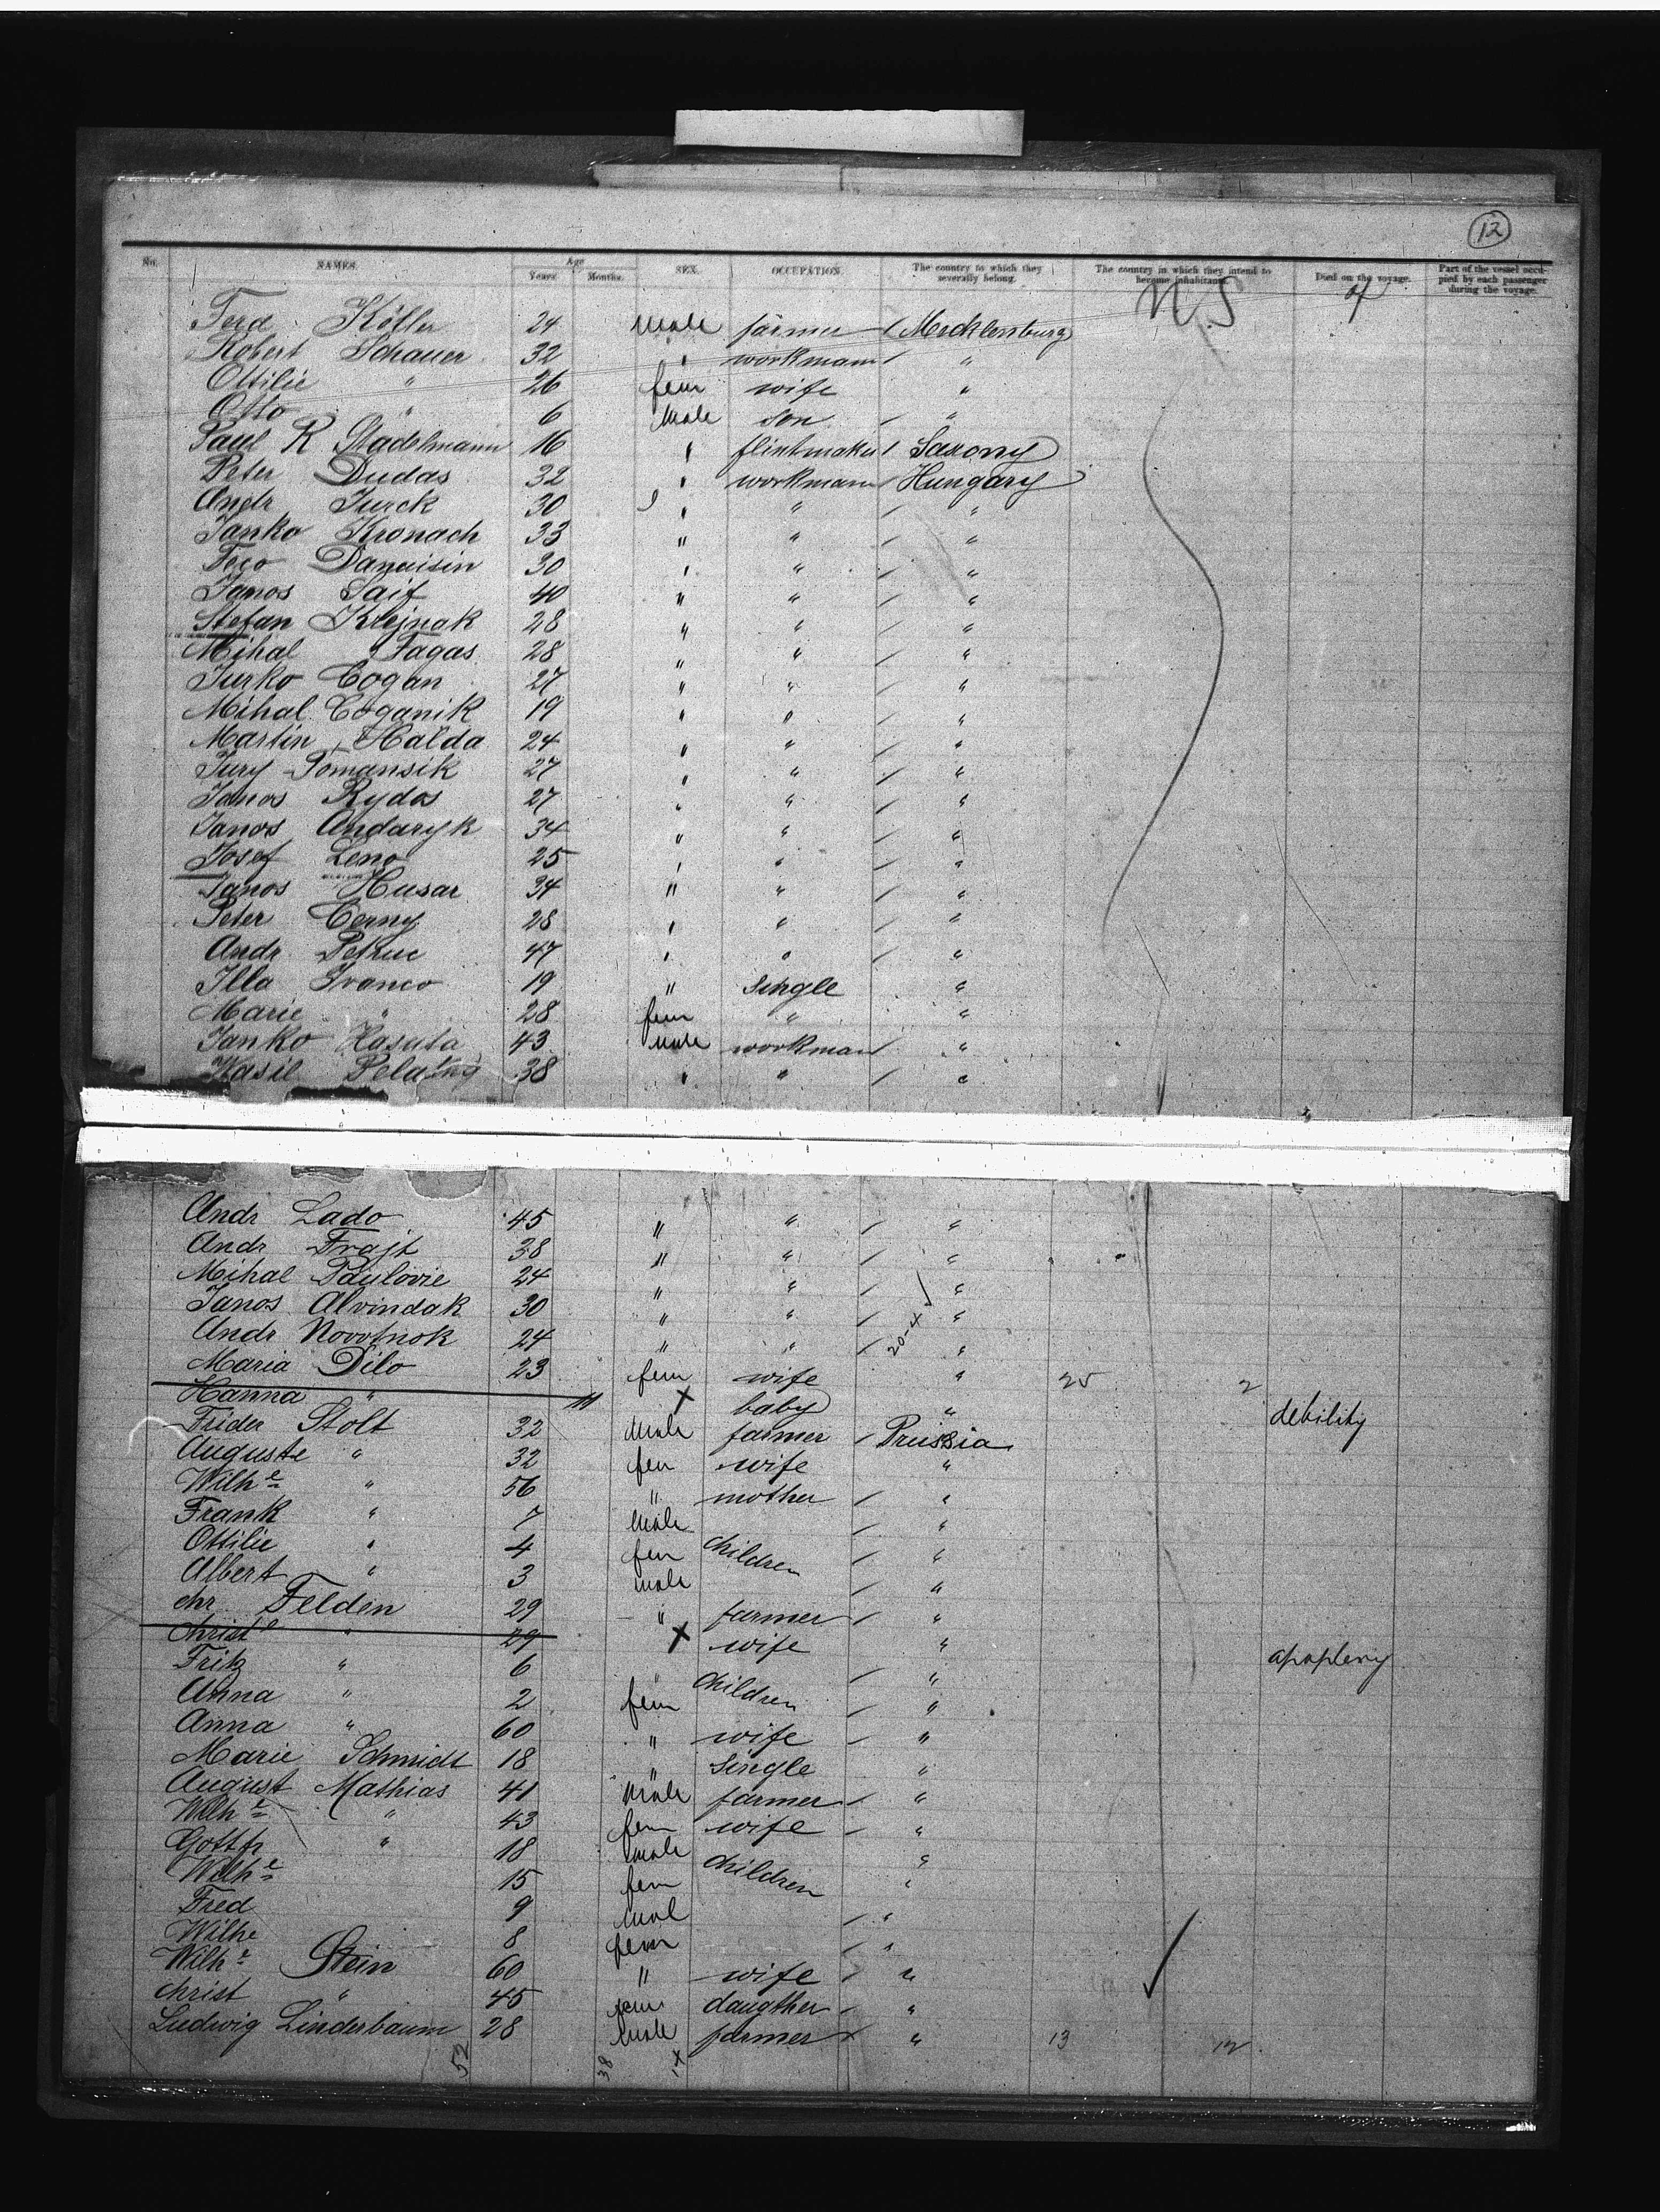 12
No. NAMES. Age Years. Months. SEX. OCCUPATION. The country to which they severally belong. The country in which they intend to become inhabitants. Died on the voyage. Part of the vessel occupied by each passenger during the voyage.
N.S of
Ferd Köller 24 Male farmer / Mecklenburg
Robert Schauer 32 " workmann / "
Ottilie " 26 fem wife "
Otto " 6 Male son / "
Paul R Stadelmann 16 " flintmaker / Saxony
Peter Dudas 32 " workmann / Hungary
Andr Jurek 30 " " / "
Janko Kronach 33 " " / "
Feco Danaisin 30 " " / "
Janos Saif 40 " " / "
Stefan Krejnak 28 " " / "
Mihal Fagas 28 " " / "
Jurko Cogan 27 " " / "
Mihal Coganik 19 " " / "
Martin Halda 24 " " / "
Jury Tomansik 27 " " / "
Janos Rydos 27 " " / "
Janos Andaryk 34 " " / "
Josef Leno 25 " " / "
Janos Husar 34 " " / "
Peter Cerny 28 " " / "
Andr Petruc 47 " " / "
Illa Ivanco 19 " single "
Marie " 28 fem " "
Janko Hasuta 43 Male workman / "
Wasil 38 " " / "
Andr Lado 45 " " / "
Andr Frajt 38 " " / "
Mihal Paulovie 24 " " / "
Janos Alvindak 30 " " / "
Andr Novotnok 24 " " / 20-x "
Maria Dilo 23 fem wife " 25 2
Hanna " 11 x baby " debility
Frider Stolt 32 Male farmer / Prussia
Auguste " 32 fem wife "
Wilhe " 56 " mother / "
Frank " 7 Male / "
Ottilie " 4 fem children / "
Albert " 3 male / "
chr. Felden 29 " farmer / "
Christ " 29 x wife " apoplexy
Fritz " 6 " children / "
Anna " 2 fem / "
Anna " 60 " wife / "
Marie Schmidt 18 " single "
August Mathias 41 Male farmer / "
Wilhe " 43 fem wife / "
Gottfr " 18 male children "
Wilhe 15 fem "
Fred 9 Mal / "
Wilhe 8 fem / "
Wilhe Stein 60 " wife / "
christ " 45 fem daugther / "
Ludwig Linderbaum 28 Male farmer x " 13 12
52 38 1x